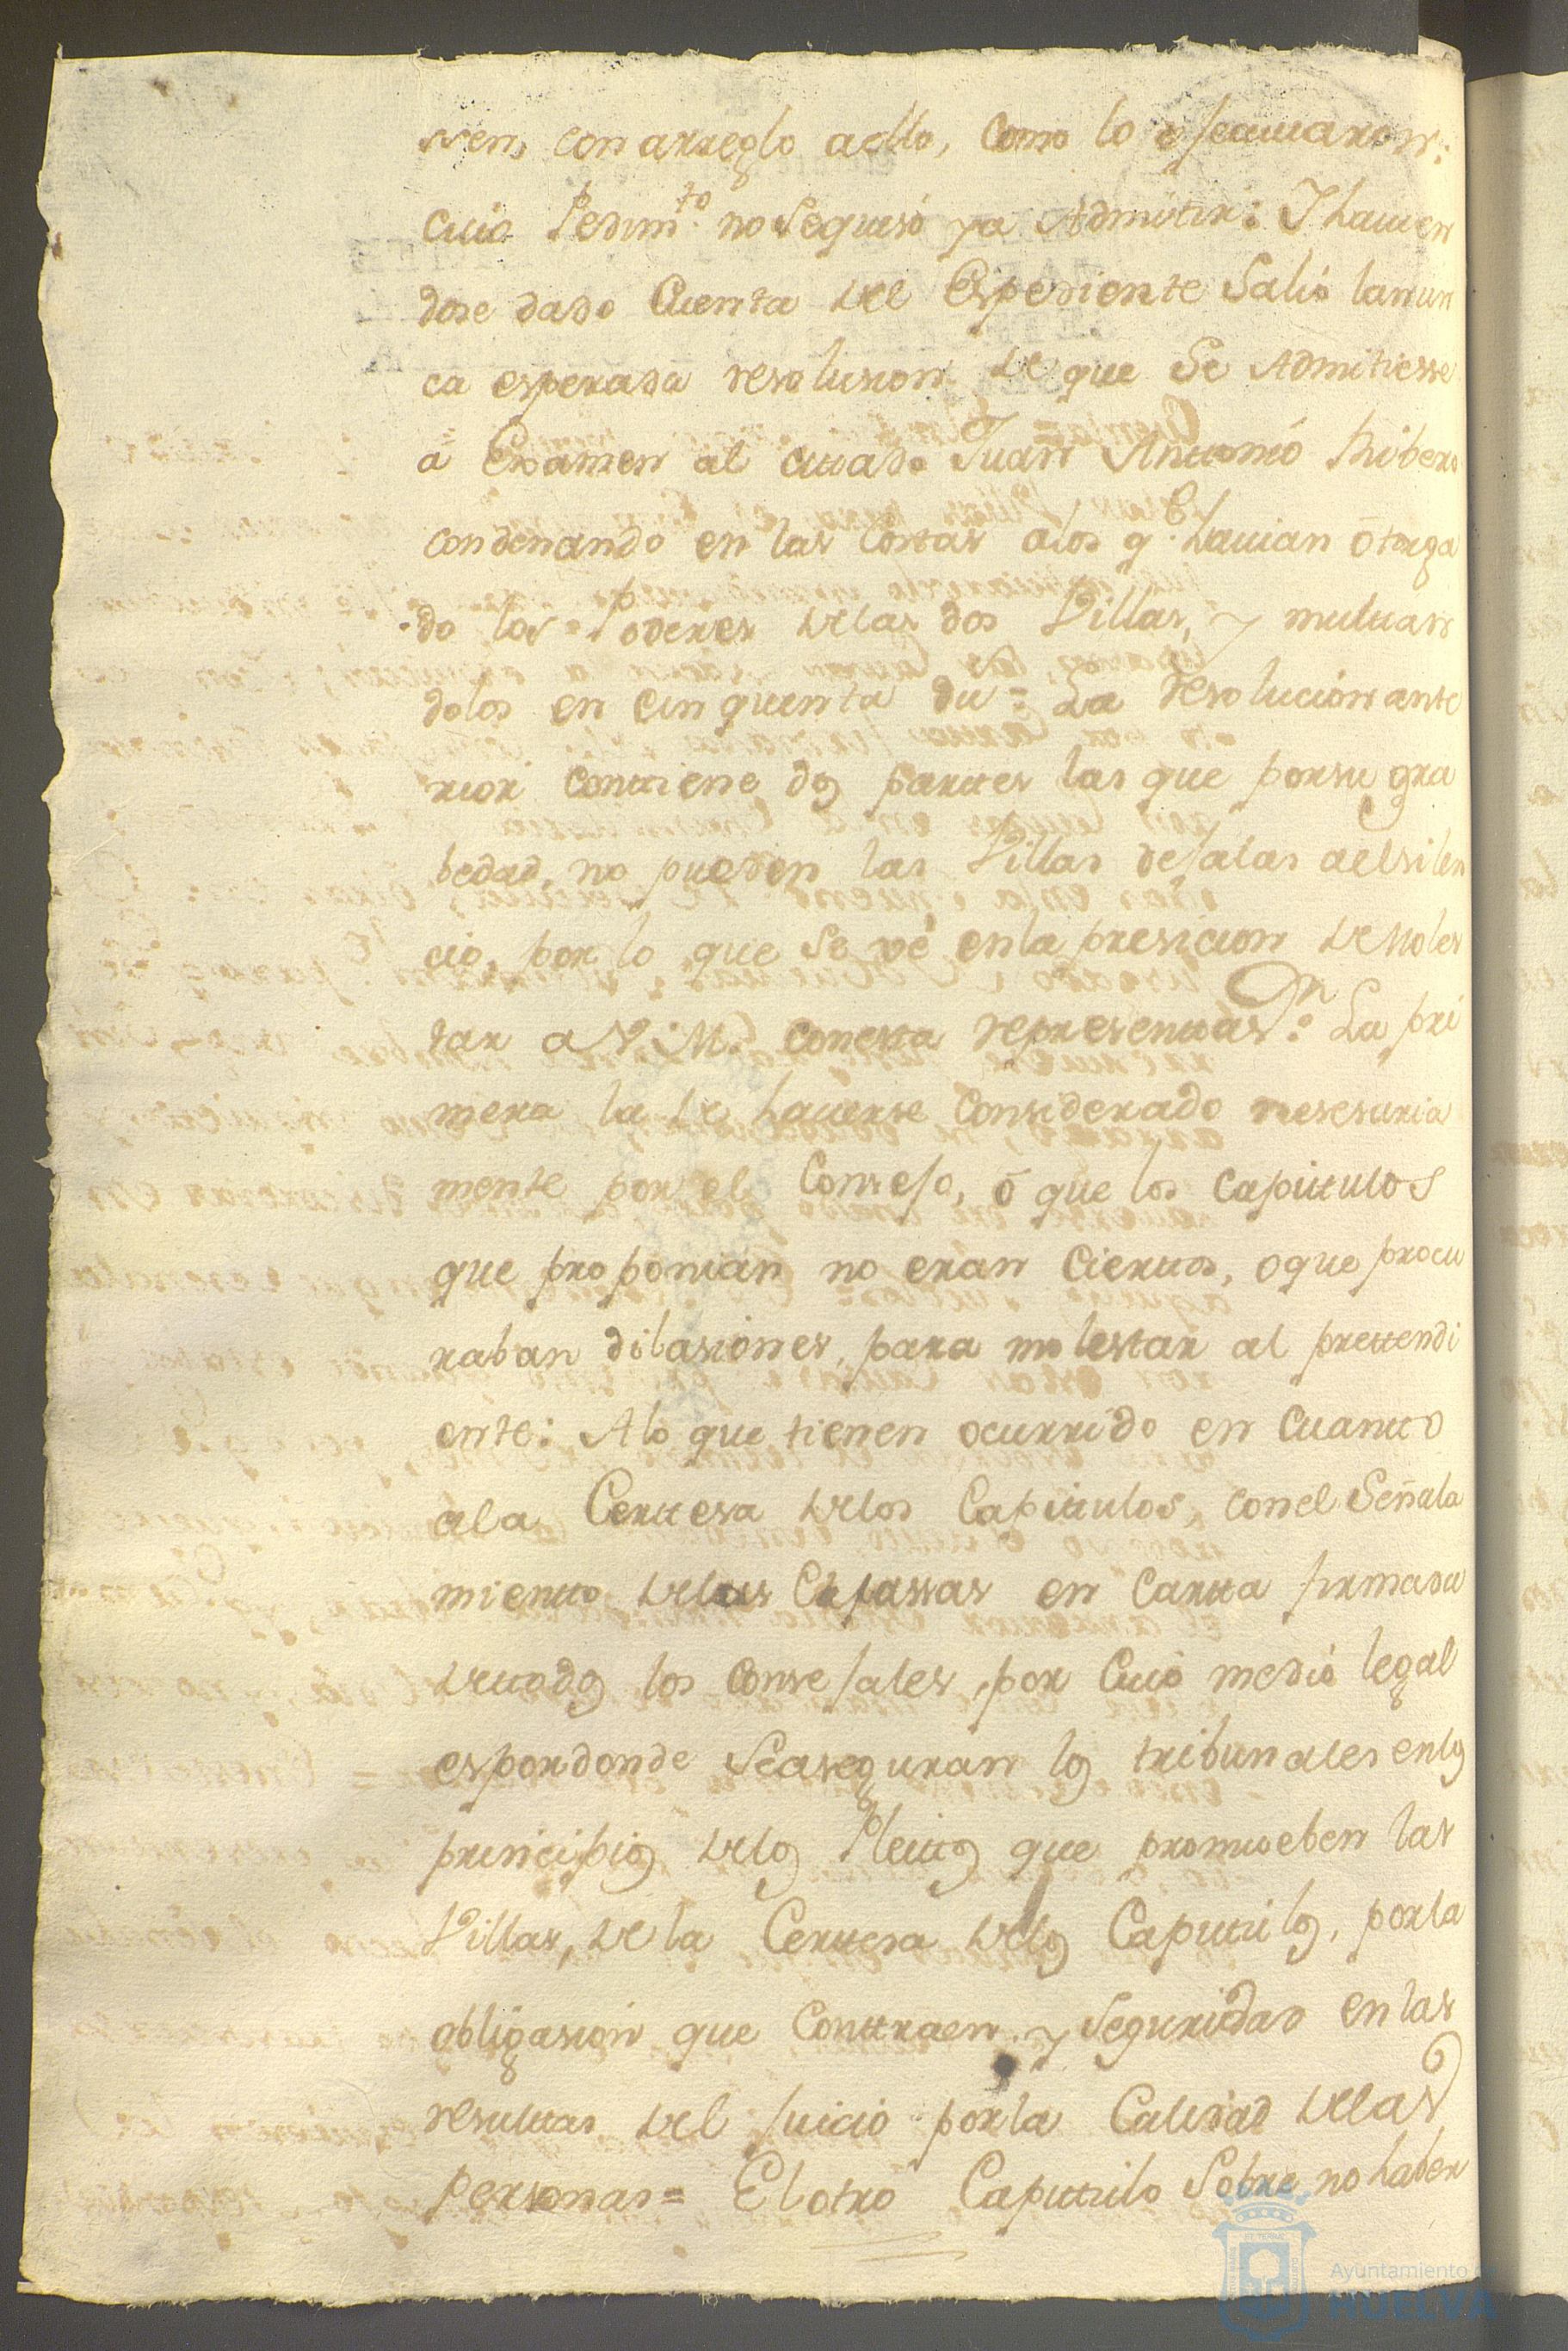 sen, con arreglo a ello, como lo efecutaron:
cuio Pedim.to no Sequisó ya Admitir: I havien
dose dado Cuenta del Espediente Salió lanun
ca esperada resolusion de que Se Admitiesse
a Examen al citado Juan Anttonio Ribero
condenando en las Costas alos q.e havian otorga
do los Poderes delas dos Villas, y multan
dolos en cinquenta du = La resolucion ante
rior conttiene dos parttes las que porsu gra
bedad, no pueden las Villas defalas alsilen
cio, por lo que Se vé enla presicion de moles
tar a V. M. conesta representas.on: La pri
mera la de haverse considerado nesesaria
mente por el Consefo, ó que los capittulos
que proponian no eran Ciertos, oque procu
raban dilasiones, para molestar al prettendi
ente: Alo que tienen ocurrido en Cuantto
ala Certtesa delos Capittulos, conel Señala
mientto delas Capassas en Cartta firmada
detodos los Consefales, por Cuio medio legal
espordonde Seaseguran los tribunales enlos
principios delos Pleittos que promueben las
Villas, de la Certtesa delos Capittulos, porla
obligasion que Conttraen, y Seguridad en las
resulttas del fuicio porla Calidad delas
personas = El otro Capittulo Sobre no haber
Ayuntamiento de
HUELVA